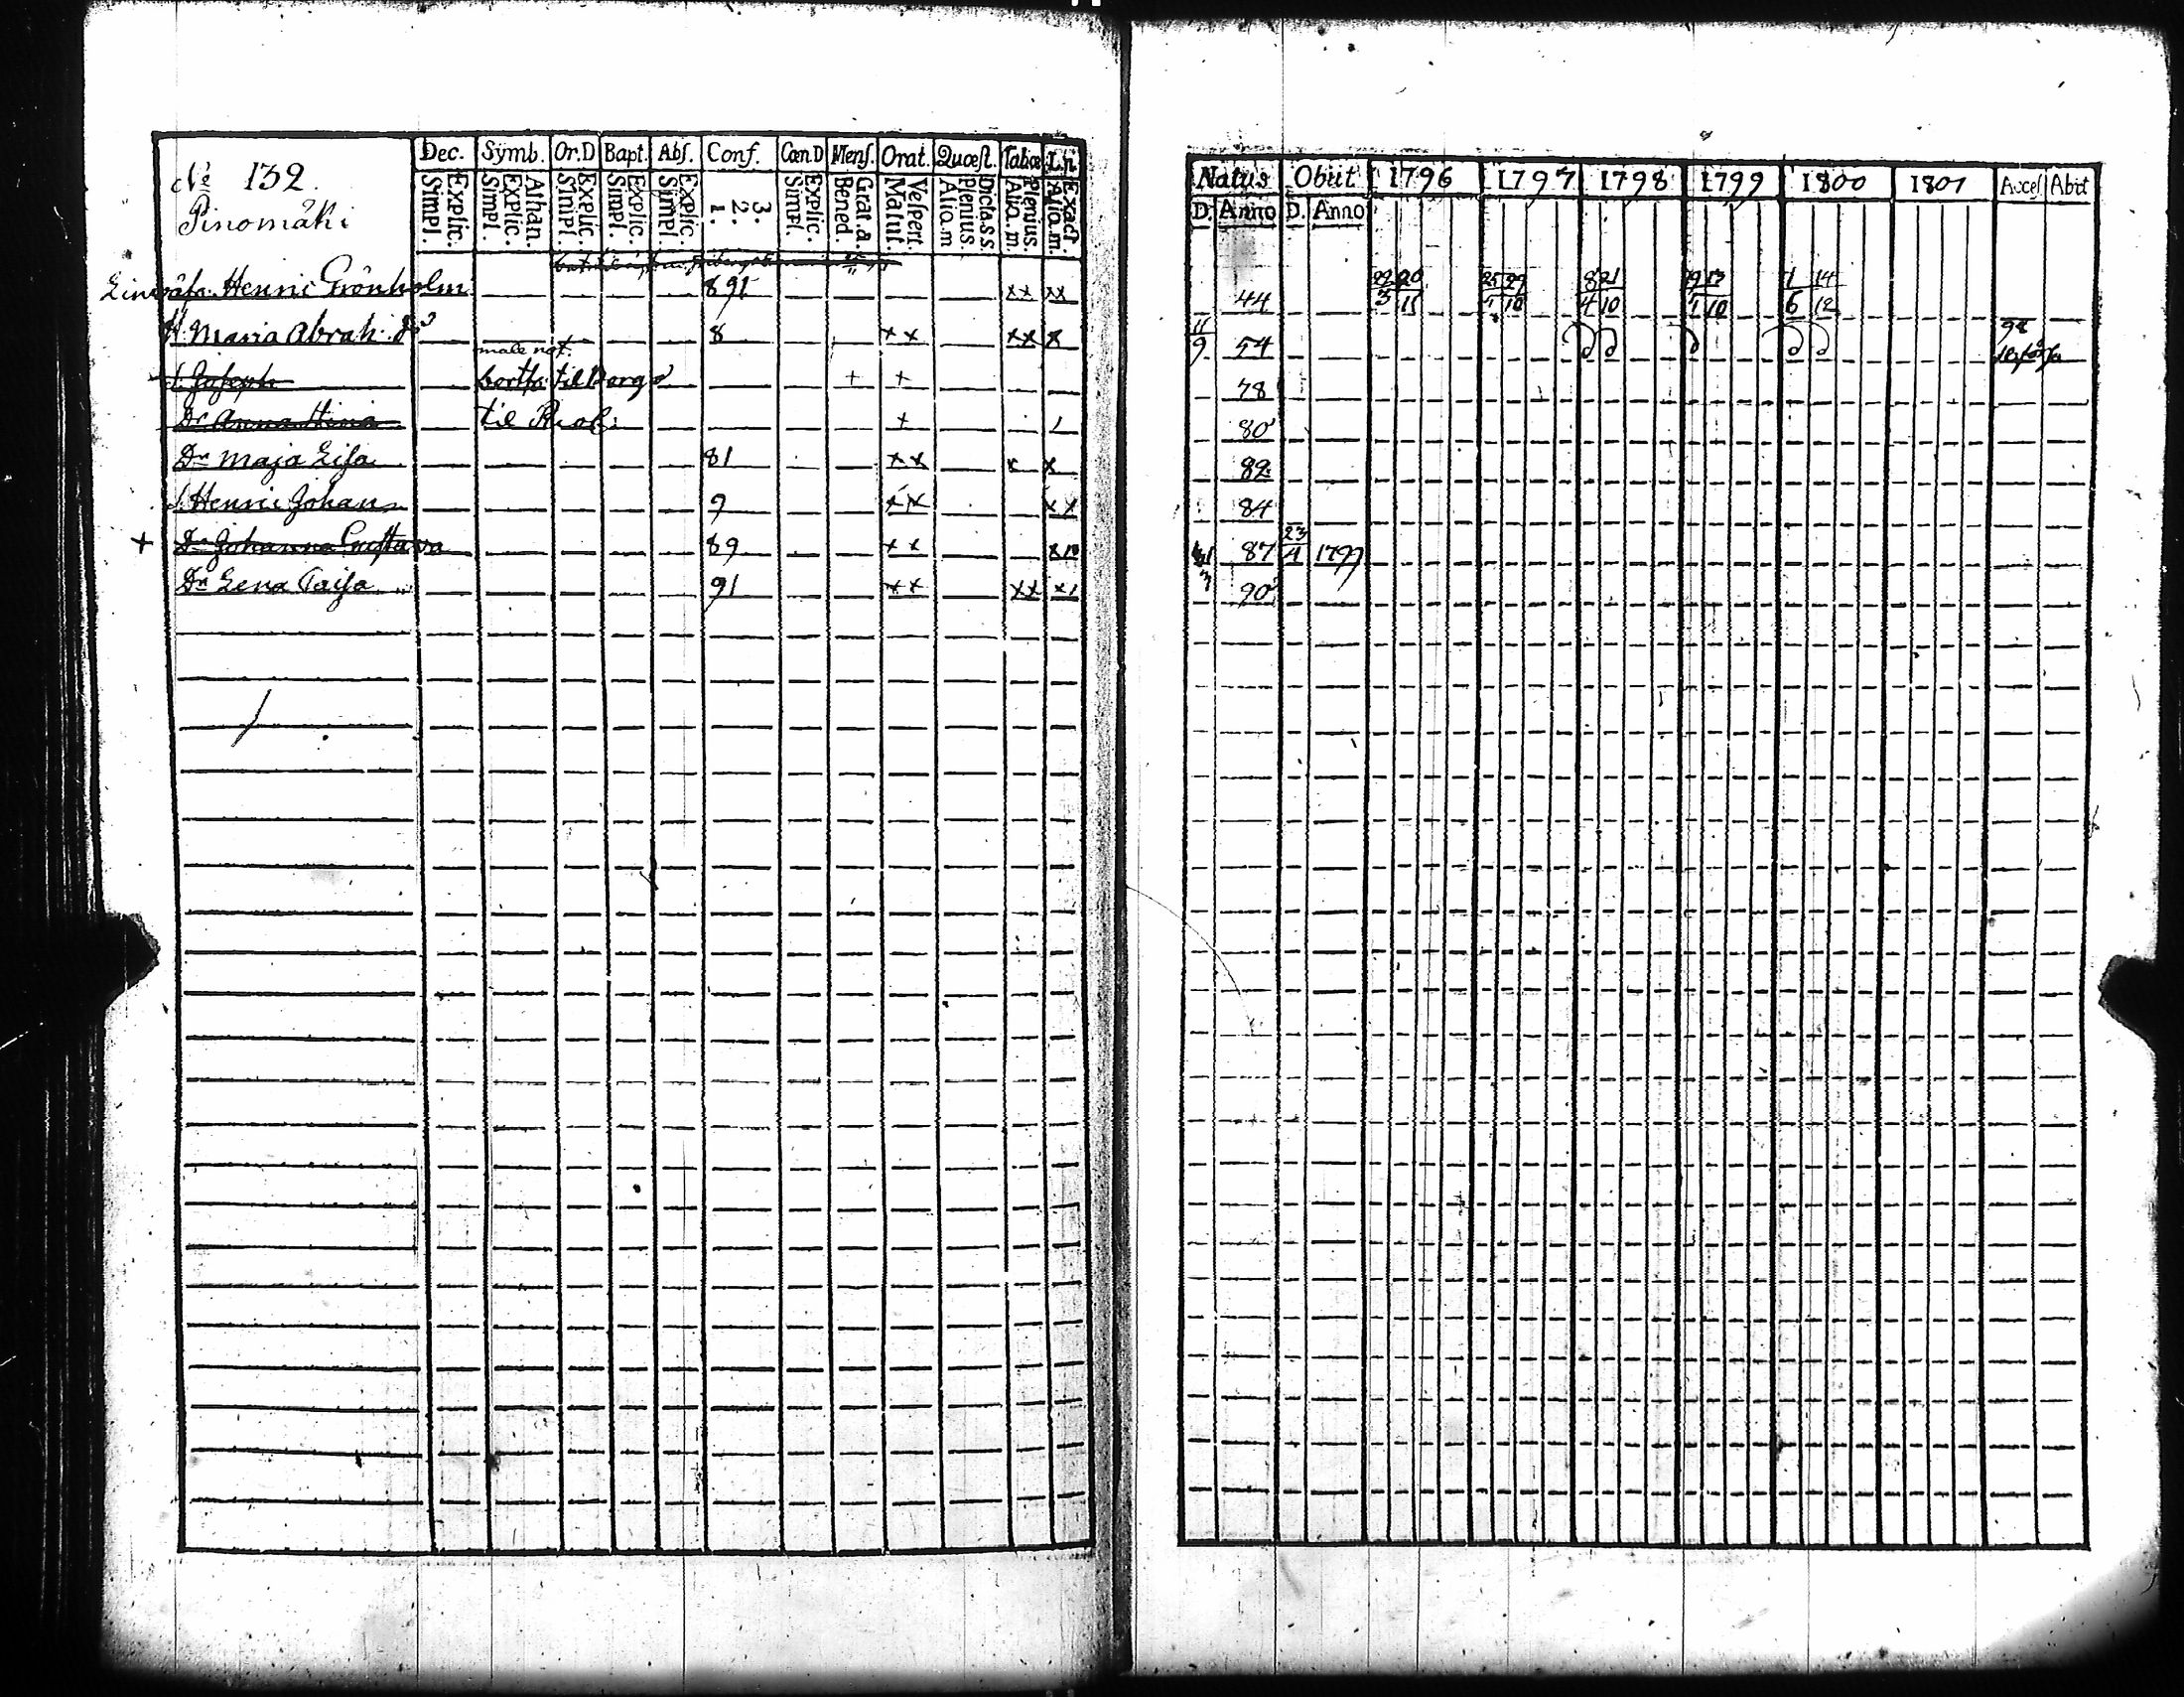 Dec. Symb. Or.D Bapt. Abs. Conf. Cœn.D Mens. Orat. Quæst. Tabœ L.n.
Nᵒ 132.
Pinomäki
Simpl. Explic. Simpl. Explic. Athan. Simpl. Explic. Simpl. Explic. Simpl. Explic. 1. 2. 3. Simpl. Explic. Bened. Grat.a. Matut. Vespert. Alia.m Plenius. Dicta.s.s. Alia.m. Plenius. Alia.m. Exact.
Henric Grönholm 891 xx xx
H. Maria Abrah: 8 xx xx x
male not.
S. Joseph til Borgo + +
Dr Anna Stina til + 1
Dr Maja Lisa 81 xx x x
S. Henric Johan 9 xx xx
+ Dr Johanna Gustava 89 xx x10
Dr Lena Caisa 91 xx xx x1
Natus Obiit 1796 1797 1798 1799 1800 1801 Acces Abit
D. Anno D. Anno
44 22/3 20/11 25/4 29/10 8/4 21/10 29/4 13/10 1/6 14/12
11/9 54 98
78
80
82
84
87 23/4 1797
90